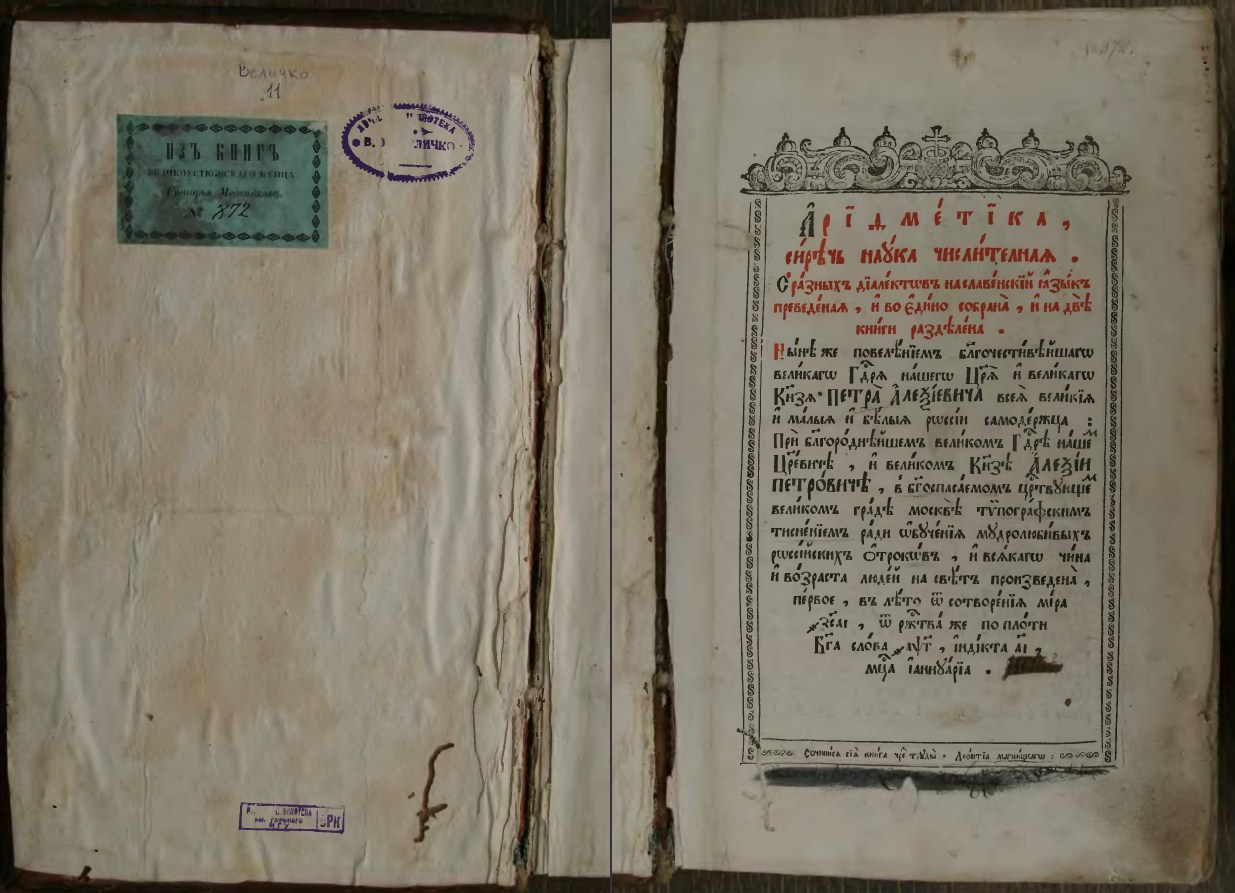 Величко
11
ИЗЪ КНИГЪ
ВЕЛИКОУСТЮЖСКАГО КУПЦА
Григорья
№ 872
ОТЕКА
ЛИЧКО
им. Горького
МГУ
ОРК
№ 872.
А҆рїѳме́тїка,
си́рѣчь наꙋ́ка числи́телная.
С̾ ра́зныхъ дїале́ктѡвъ на славе́нскїй ꙗ҆зы́къ
преведе́наѧ, и҆ во є҆ди́но собрана̀, и҆ на двѣ̀
кни̑ги раздѣле́на.
Ны́нѣ же повелѣ́нїемъ бл҃гочести́вѣйшагѡ
вели́кагѡ Гдⷭ҇рѧ на́шегѡ Цр҃ѧ̀ и҆ вели́кагѡ
Кн҃зѧ ПЕТРА̀ А҆ЛЕѮІ́ЕВИЧА всеѧ̀ вели́кїѧ
и҆ ма́лыѧ и҆ бѣ́лыѧ рѡссі́и самоде́ржца:
Прѝ бл҃горо́днѣйшемъ вели́комъ Гдⷭ҇рѣ̀ на́шеⷨ
Цр҃е́вичѣ, и҆ вели́комъ Кн҃зѣ А҆ЛЕѮІ́И
ПЕТРО́ВИЧѢ, в̾ бг҃оспаса́емомъ црⷭ҇твꙋ́ющеⷨ
вели́комъ гра́дѣ москвѣ̀ тѷпогра́фскимъ
тисне́нїемъ ра́ди ѡ҆бꙋче́нїѧ мꙋдролюби́выхъ
рѡссі́йскихъ ѻ҆́трокѡвъ, и҆ всѧ́кагѡ чи́на
и҆ во́зраста люде́й на свѣ́тъ произведена̀,
пе́рвое, въ лѣ́то ѿ сотворе́нїѧ мі́ра
҂зс҃аі, ѿ рж҃тва̀ же по пло́ти
Бг҃а сло́ва ҂аѱ҃г, і҆нді́кта а҃і,
мцⷭ҇а і҆аннꙋа́рїа.
Сочини́сѧ сїѧ̀ кни́га чреⷥ трꙋды̀ Лео́нтїа магни́цкагѡ: